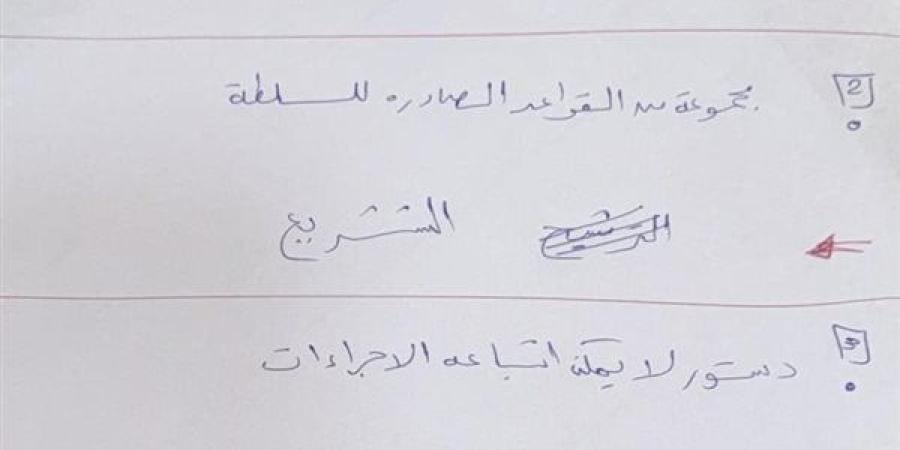 2 مجموعة من القواعد الصادره للسلطة
التشريع
3 دستور لا يمكن اتباعه الاجراءات